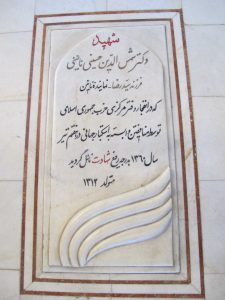 شهید
دکتر شمس الدین حسینی نائینی
فرزند سید رضا - نماینده نائین
که در انفجار دفتر مرکزی حزب جمهوری اسلامی
توسط منافقین وابسته به استکبار جهانی در هفتم تیر
سال ۱۳۶۰ به درجه رفیع شهادت نائل گردید
متولد ۱۳۱۲